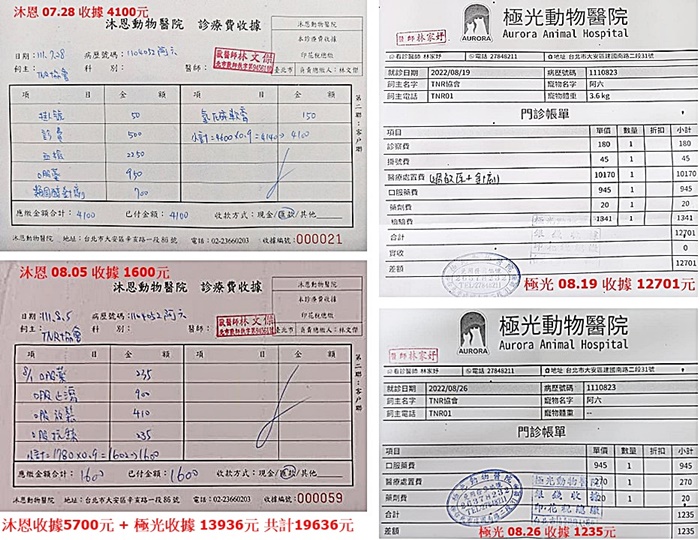 沐恩 07.28 收據 4100元
沐恩動物醫院 診療費收據
沐恩動物醫院
本診療費收據
印花稅總繳
臺北市 負責總繳人:林文傑
日期:111.7.28 病歷號碼:1104032 阿六
飼主:TNR協會 科 別: 醫師:
獸醫師林文傑
項 目 金 額 項 目 金 額
掛號 50 150
診費 500 小計=4600×0.9=4140→4100
血檢 2250
口服藥 950
700
應繳金額合計:4100 已付金額:4100 收款方式:現金/匯款/其他
沐恩動物醫院 地址:台北市大安區辛亥路一段86號 電話:02-23660203 收據編號:000021
第二聯:客戶聯
沐恩 08.05 收據 1600元
沐恩動物醫院 診療費收據
沐恩動物醫院
本診療費收據
印花稅總繳
臺北市 負責總繳人:林文傑
日期:111.8.5 病歷號碼:1104032 阿六
飼主:TNR協會 科 別: 醫師:
獸醫師林文傑
項 目 金 額 項 目 金 額
8/1 口服藥 235
口服止瀉 900
口服 410
口服 235
小計=1780×0.9=1602→1600
應繳金額合計:1600 已付金額:1600 收款方式:現金/匯款/其他
沐恩動物醫院 地址:台北市大安區辛亥路一段86號 電話:02-23660203 收據編號:000059
第二聯:客戶聯
沐恩收據5700元 + 極光收據 13936元 共計19636元
極光動物醫院
AURORA Aurora Animal Hospital
獸醫師林家妤
看診醫師 林家妤 電話 27848211 地址 台北市大安區建國南路二段31號
就診日期 2022/08/19 病歷號碼 1110823
飼主名字 TNR協會 寵物名字 阿六
飼主電話 TNR01 寵物體重 3.6 kg
門診帳單
項目 單價 數量 折扣 小計
診察費 180 1 180
掛號費 45 1 45
醫療處置費 10170 1 10170
口服藥費 945 1 945
藥劑費 20 1 20
檢驗費 1341 1 1341
合計 12701
實收 0
差額 12701
極光 08.19 收據 12701元
極光動物醫院
AURORA Aurora Animal Hospital
獸醫師林家妤
看診醫師 林家妤 電話 27848211 地址 台北市大安區建國南路二段31號
就診日期 2022/08/26 病歷號碼 1110823
飼主名字 TNR協會 寵物名字 阿六
飼主電話 TNR01 寵物體重 --
門診帳單
項目 單價 數量 折扣 小計
口服藥費 945 1 945
醫療處置費 270 1 270
藥劑費 20 1 20
合計 1235
差額 1235
極光 08.26 收據 1235元